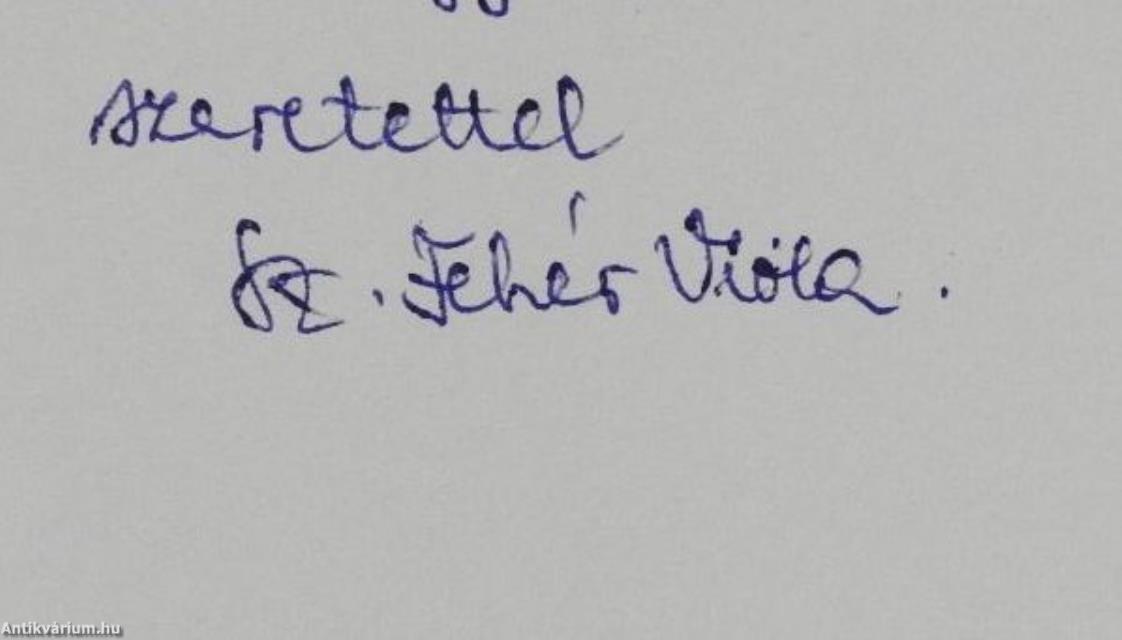 szeretettel
Sz. Fehér Vióla.
Antikvárium.hu